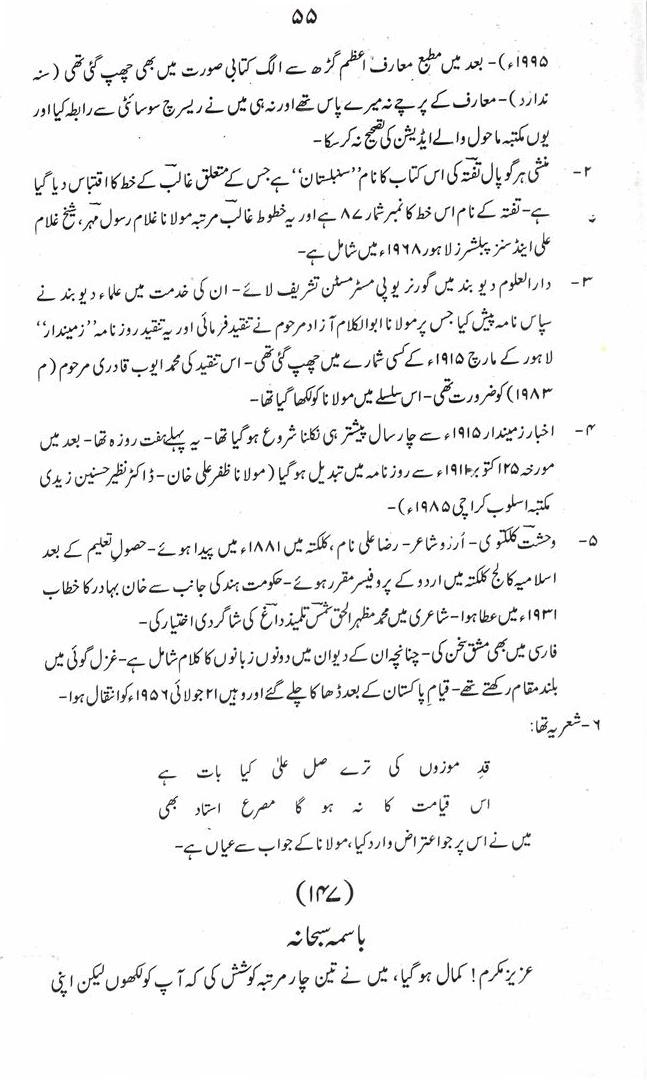 ۵۵
۱۹۹۵ء)- بعد میں مطبع معارف اعظم گڑھ سے الگ کتابی صورت میں بھی چھپ گئی تھی (سنہ
ندارد)- معارف کے پرچے نہ میرے پاس تھے اور نہ ہی میں نے ریسرچ سوسائٹی سے رابطہ کیا اور
یوں مکتبہ ماحول والے ایڈیشن کی تصحیح نہ کر سکا-
۲- منشی ہرگوپال تفتہ کی اس کتاب کا نام ’’سنبلستان‘‘ ہے جس کے متعلق غالب کے خط کا اقتباس دیا گیا
ہے- تفتہ کے نام اس خط کا نمبر شمار ۸۷ ہے اور یہ خطوط غالب مرتبہ مولانا غلام رسول مہر، شیخ غلام
علی اینڈ سنز پبلشرز لاہور ۱۹۶۸ء میں شامل ہے-
۳- دارالعلوم دیوبند میں گورنر یو پی مسٹر مسٹن تشریف لائے- ان کی خدمت میں علماء دیوبند نے
سپاس نامہ پیش کیا جس پر مولانا ابوالکلام آزاد مرحوم نے تنقید فرمائی اور یہ تنقید روزنامہ ’’زمیندار‘‘
لاہور کے مارچ ۱۹۱۵ء کے کسی شمارے میں چھپ گئی تھی- اس تنقید کی محمد ایوب قادری مرحوم (م
۱۹۸۳) کو ضرورت تھی- اس سلسلے میں مولانا کو لکھا گیا تھا-
۴- اخبار زمیندار ۱۹۱۵ء سے چار سال پیشتر ہی نکلنا شروع ہو گیا تھا- یہ پہلے ہفت روزہ تھا- بعد میں
مورخہ ۲۵ اکتوبر ۱۹۱۲ء سے روزنامہ میں تبدیل ہو گیا (مولانا ظفر علی خان- ڈاکٹر نظیر حسنین زیدی
مکتبہ اسلوب کراچی ۱۹۸۵ء)-
۵- وحشت کلکتوی- اُردو شاعر- رضا علی نام، کلکتہ میں ۱۸۸۱ء میں پیدا ہوئے- حصولِ تعلیم کے بعد
اسلامیہ کالج کلکتہ میں اردو کے پروفیسر مقرر ہوئے- حکومت ہند کی جانب سے خان بہادر کا خطاب
۱۹۳۱ء میں عطا ہوا- شاعری میں محمد مظہر الحق شمس تلمیذ داغ کی شاگردی اختیار کی-
فارسی میں بھی مشق سخن کی- چنانچہ ان کے دیوان میں دونوں زبانوں کا کلام شامل ہے- غزل گوئی میں
بلند مقام رکھتے تھے- قیامِ پاکستان کے بعد ڈھاکا چلے گئے اور وہیں ۲۱ جولائی ۱۹۵۶ء کو انتقال ہوا-
۶- شعر یہ تھا:
قدِ موزوں کی ترے صل علیٰ کیا بات ہے
اس قیامت کا نہ ہو گا مصرع استاد بھی
میں نے اس پر جو اعتراض وارد کیا، مولانا کے جواب سے عیاں ہے-
(۱۴۷)
باسمہ سبحانہ
عزیز مکرم! کمال ہو گیا، میں نے تین چار مرتبہ کوشش کی کہ آپ کو لکھوں لیکن اپنی